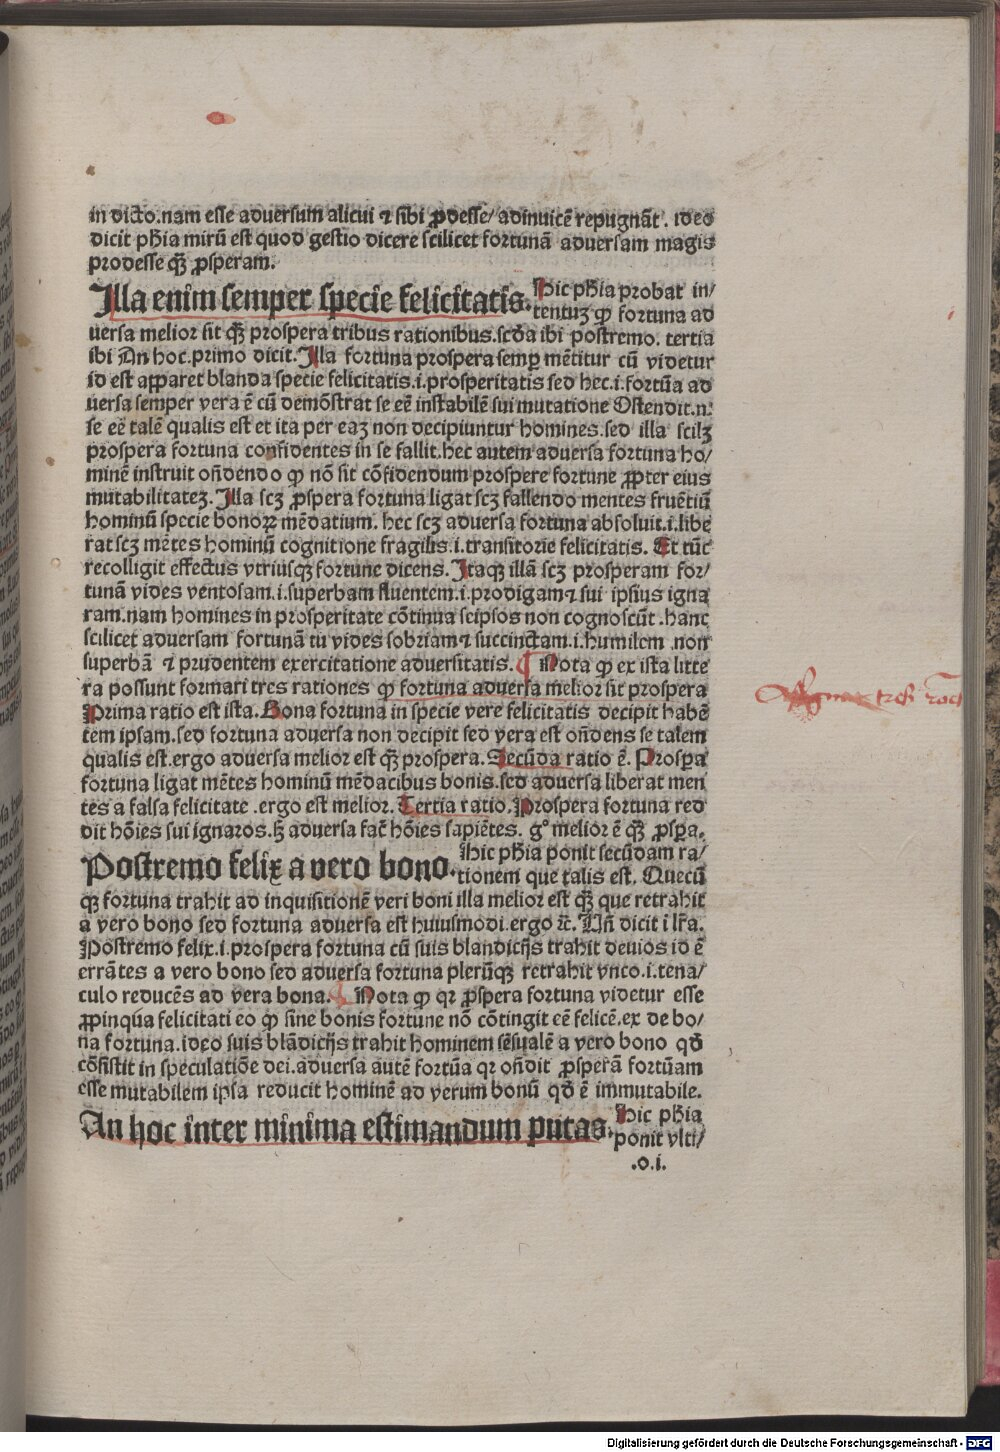 in dicto.nam esse aduersum alicui ⁊ sibi ꝓdesse/ adinuicē repugnāt. ideo
dicit phīa mirū est quod gestio dicere scilicet fortunā aduersam magis
prodesse qȝ̄ ꝓsperam.
Illa enim semper specie felicitatis.
Hic phīa probat in/
tentuȝ ꝙ fortuna ad
uersa melior sit qȝ̄ prospera tribus rationibus.scd̄a ibi postremo. tertia
ibi An hoc.primo dicit.Illa fortuna prospera semꝑ mētitur cū videtur
id est apparet blanda specie felicitatis.i.prosperitatis sed hec.i.fortūa ad
uersa semper vera ē cū demōstrat se eē instabilē sui mutatione Ostendit.n.
se eē talē qualis est et ita per eaȝ non decipiuntur homines.sed illa scilȝ
prospera fortuna confidentes in se fallit.hec autem aduersa fortuna ho/
minē instruit on̄dendo ꝙ nō sit cōfidendum prospere fortune ꝓpter eius
mutabilitateȝ. Illa scȝ ꝓspera fortuna ligat scȝ fallendo mentes fruētiū
hominū specie bonoꝝ mēdatium. hec scȝ aduersa fortuna absoluit.i.libe
rat scȝ mētes hominū cognitione fragilis.i.transitorie felicitatis. Et tūc
recolligit effectus vtriusqȝ fortune dicens. Itaqȝ illā scȝ prosperam for/
tunā vides ventosam.i.superbam fluentem.i.prodigam ⁊ sui ipsius igna
ram.nam homines in prosperitate cōtinua seipsos non cognoscūt .hanc
scilicet aduersam fortunā tu vides sobriam ⁊ succinctam.i.humilem .non
superbā ⁊ prudentem exercitatione aduersitatis. ¶ Nota ꝙ ex ista litte
ra possunt formari tres rationes ꝙ fortuna aduersa melior sit prospera
Prima ratio est ista. Bona fortuna in specie vere felicitatis decipit habē
tem ipsam.sed fortuna aduersa non decipit sed vera est on̄dens se talem
qualis est.ergo aduersa melior est qȝ̄ prospera. Secūda ratio ē. Prospa
fortuna ligat mētes hominū mēdacibus bonis.sed aduersa liberat men
tes a falsa felicitate .ergo est melior. Tertia ratio. Prospera fortuna red
dit hōies sui ignaros.sȝ aduersa fac̄t hōies sapiētes. g° melior ē qȝ̄ ꝓsꝑa.
Postremo felix a vero bono.
Hic phīa ponit secūdam ra/
tionem que talis est. Quecū
qȝ fortuna trahit ad inquisitionē veri boni illa melior est qȝ̄ que retrahit
a vero bono sed fortuna aduersa est huiusmodi.ergo ⁊c̄. Un̄ dicit ī lr̄a.
Postremo felix.i.prospera fortuna cū suis blandicijs trahit deuios id ē
errātes a vero bono sed aduersa fortuna plerūqȝ retrahit vnco.i.tena/
culo reducēs ad vera bona. ¶ Nota ꝙ qr ꝓspera fortuna videtur esse
ꝓpinqua felicitati eo ꝙ sine bonis fortune nō cōtingit eē felicē.ex de bo/
na fortuna.ideo suis blādicijs trahit hominem sēsualē a vero bono qd̄
cōsistit in speculatiōe dei.aduersa autē fortūa qr on̄dit ꝓsperā fortūam
esse mutabilem ipsa reducit hominē ad verum bonū qd̄ ē immutabile.
An hoc inter minima estimandum putas.
Hic phīa
ponit vlti/
.o.i.
Digitalisierung gefördert durch die Deutsche Forschungsgemeinschaft - DFG